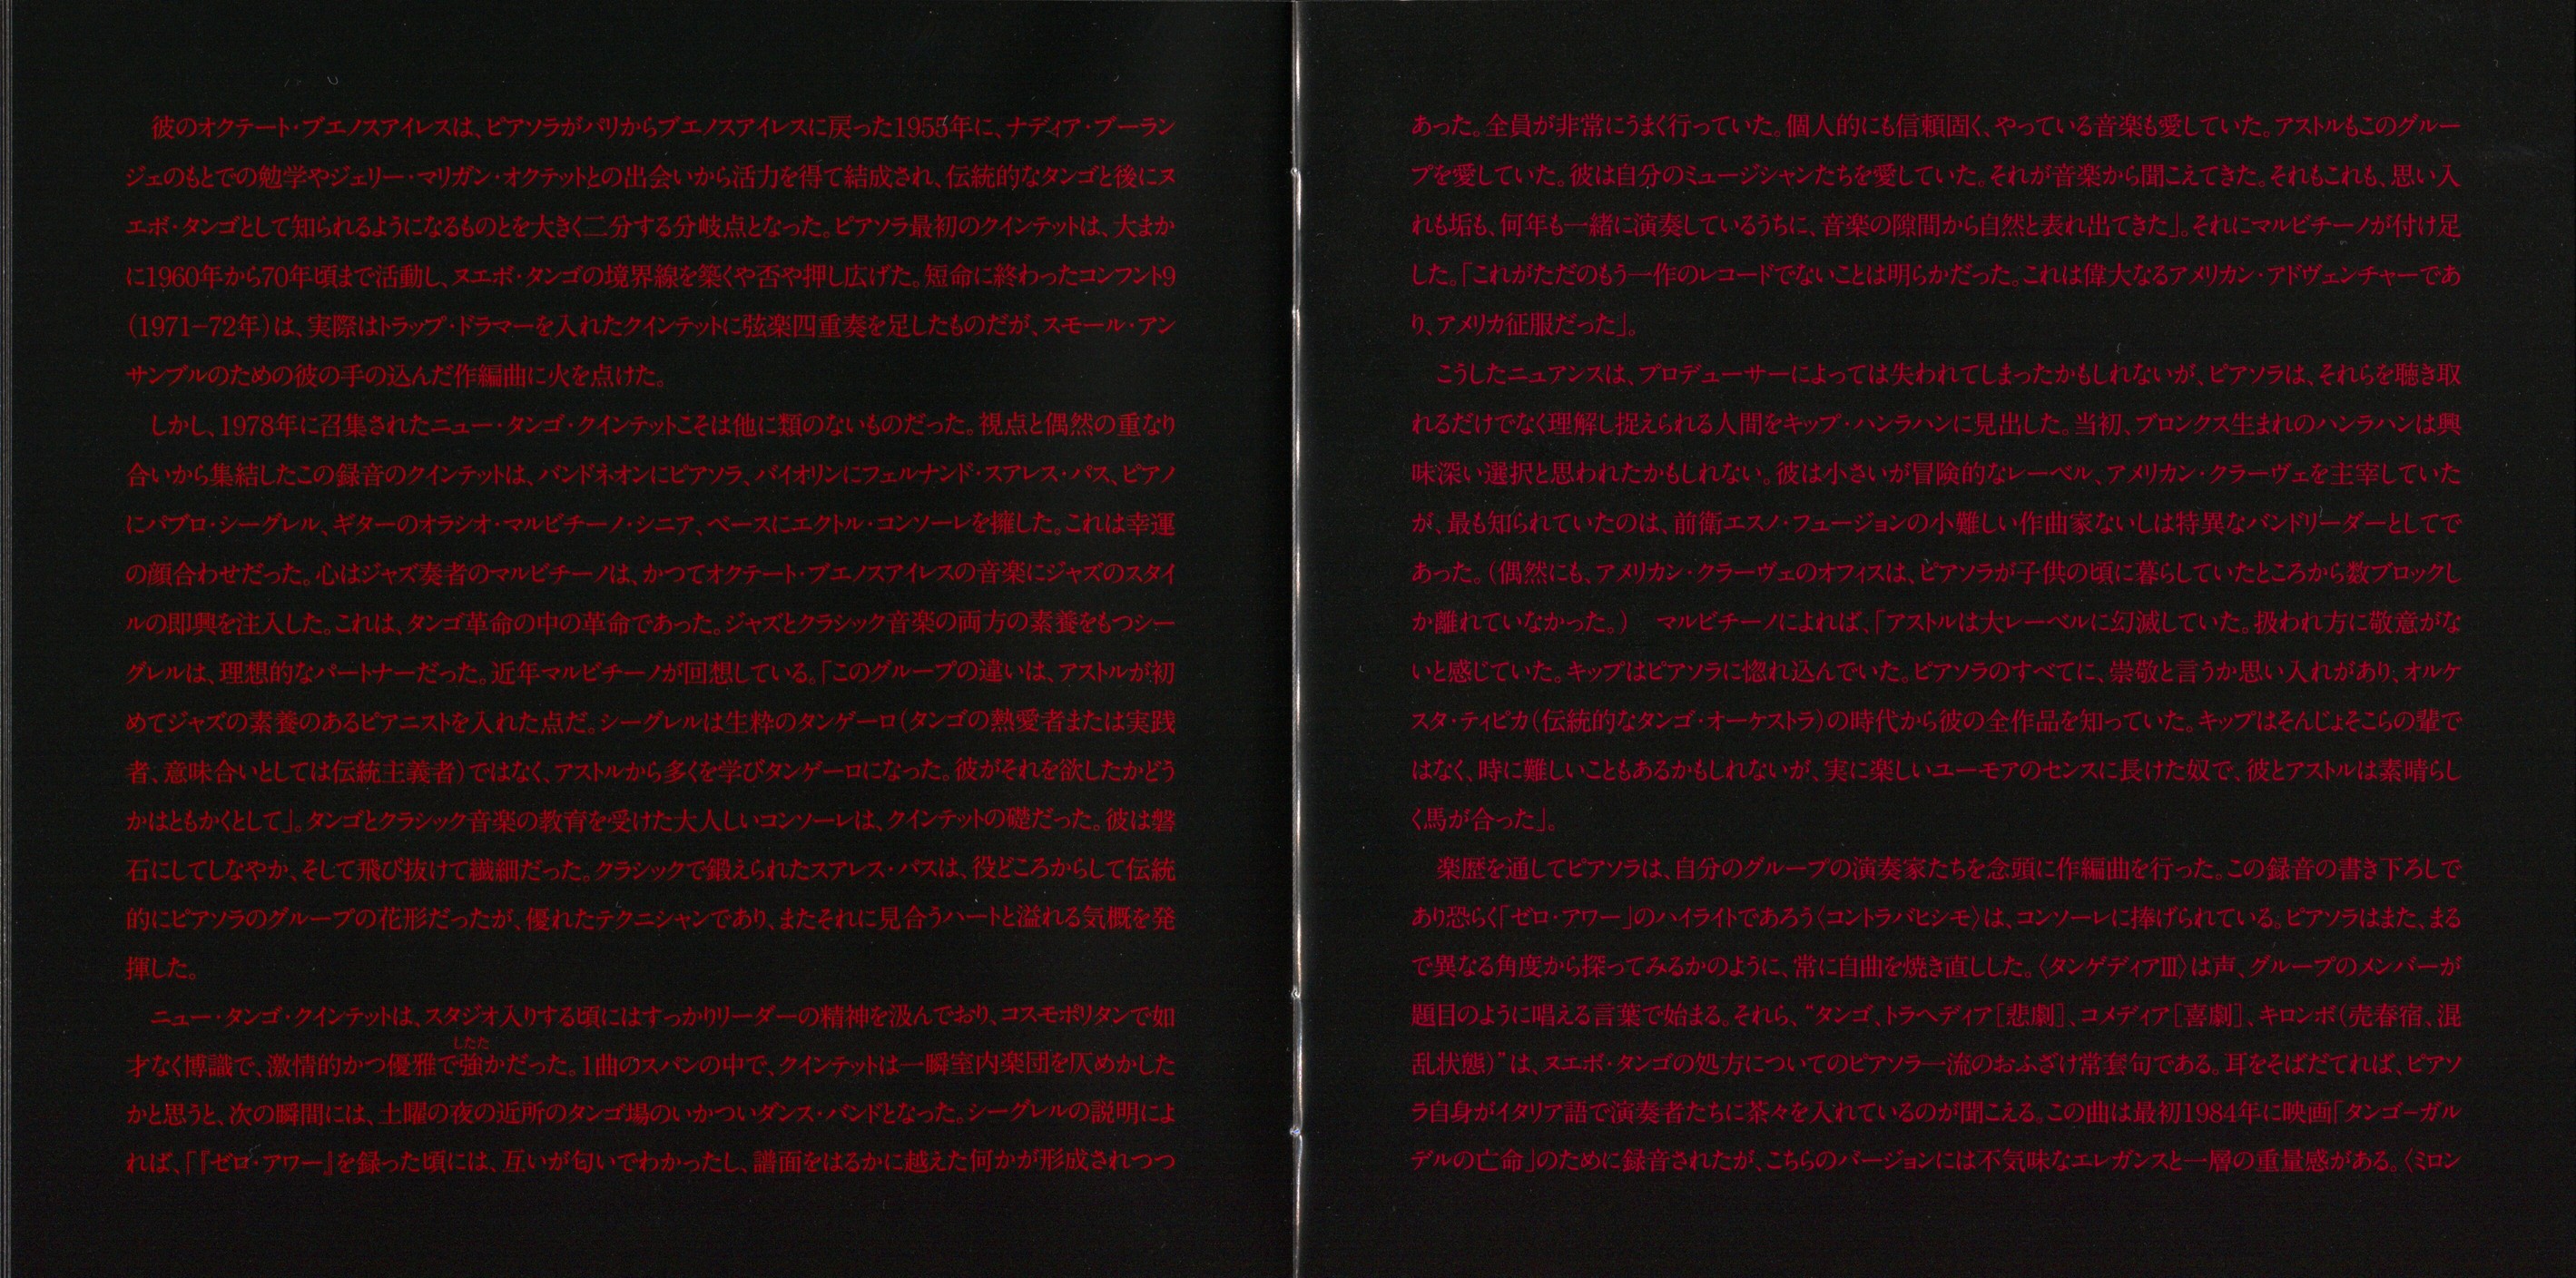 彼のオクテート・ブエノスアイレスは、ピアソラがパリからブエノスアイレスに戻った1955年に、ナディア・ブーラン
ジェのもとでの勉学やジェリー・マリガン・オクテットとの出会いから活力を得て結成され、伝統的なタンゴと後にヌ
エボ・タンゴとして知られるようになるものとを大きく二分する分岐点となった。ピアソラ最初のクインテットは、大まか
に1960年から70年頃まで活動し、ヌエボ・タンゴの境界線を築くや否や押し広げた。短命に終わったコンフント9
（1971−72年）は、実際はトラップ・ドラマーを入れたクインテットに弦楽四重奏を足したものだが、スモール・アン
サンブルのための彼の手の込んだ作編曲に火を点けた。
しかし、1978年に召集されたニュー・タンゴ・クインテットこそは他に類のないものだった。視点と偶然の重なり
合いから集結したこの録音のクインテットは、バンドネオンにピアソラ、バイオリンにフェルナンド・スアレス・パス、ピアノ
にパブロ・シーグレル、ギターのオラシオ・マルビチーノ・シニア、ベースにエクトル・コンソーレを擁した。これは幸運
の顔合わせだった。心はジャズ奏者のマルビチーノは、かつてオクテート・ブエノスアイレスの音楽にジャズのスタイ
ルの即興を注入した。これは、タンゴ革命の中の革命であった。ジャズとクラシック音楽の両方の素養をもつシー
グレルは、理想的なパートナーだった。近年マルビチーノが回想している。「このグループの違いは、アストルが初
めてジャズの素養のあるピアニストを入れた点だ。シーグレルは生粋のタンゲーロ（タンゴの熱愛者または実践
者、意味合いとしては伝統主義者）ではなく、アストルから多くを学びタンゲーロになった。彼がそれを欲したかどう
かはともかくとして」。タンゴとクラシック音楽の教育を受けた大人しいコンソーレは、クインテットの礎だった。彼は磐
石にしてしなやか、そして飛び抜けて繊細だった。クラシックで鍛えられたスアレス・パスは、役どころからして伝統
的にピアソラのグループの花形だったが、優れたテクニシャンであり、またそれに見合うハートと溢れる気概を発
揮した。
ニュー・タンゴ・クインテットは、スタジオ入りする頃にはすっかりリーダーの精神を汲んでおり、コスモポリタンで如
したた
才なく博識で、激情的かつ優雅で強かだった。1曲のスパンの中で、クインテットは一瞬室内楽団を仄めかした
かと思うと、次の瞬間には、土曜の夜の近所のタンゴ場のいかついダンス・バンドとなった。シーグレルの説明によ
れば、「『ゼロ・アワー』を録った頃には、互いが匂いでわかったし、譜面をはるかに越えた何かが形成されつつ
あった。全員が非常にうまく行っていた。個人的にも信頼固く、やっている音楽も愛していた。アストルもこのグルー
プを愛していた。彼は自分のミュージシャンたちを愛していた。それが音楽から聞こえてきた。それもこれも、思い入
れも垢も、何年も一緒に演奏しているうちに、音楽の隙間から自然と表れ出てきた」。それにマルビチーノが付け足
した。「これがただのもう一作のレコードでないことは明らかだった。これは偉大なるアメリカン・アドヴェンチャーであ
り、アメリカ征服だった」。
こうしたニュアンスは、プロデューサーによっては失われてしまったかもしれないが、ピアソラは、それらを聴き取
れるだけでなく理解し捉えられる人間をキップ・ハンラハンに見出した。当初、ブロンクス生まれのハンラハンは興
味深い選択と思われたかもしれない。彼は小さいが冒険的なレーベル、アメリカン・クラーヴェを主宰していた
が、最も知られていたのは、前衛エスノ・フュージョンの小難しい作曲家ないしは特異なバンドリーダーとしてで
あった。（偶然にも、アメリカン・クラーヴェのオフィスは、ピアソラが子供の頃に暮らしていたところから数ブロックし
か離れていなかった。）　マルビチーノによれば、「アストルは大レーベルに幻滅していた。扱われ方に敬意がな
いと感じていた。キップはピアソラに惚れ込んでいた。ピアソラのすべてに、崇敬と言うか思い入れがあり、オルケ
スタ・ティピカ（伝統的なタンゴ・オーケストラ）の時代から彼の全作品を知っていた。キップはそんじょそこらの輩で
はなく、時に難しいこともあるかもしれないが、実に楽しいユーモアのセンスに長けた奴で、彼とアストルは素晴らし
く馬が合った」。
楽歴を通してピアソラは、自分のグループの演奏家たちを念頭に作編曲を行った。この録音の書き下ろしで
あり恐らく「ゼロ・アワー」のハイライトであろう〈コントラバヒシモ〉は、コンソーレに捧げられている。ピアソラはまた、まる
で異なる角度から探ってみるかのように、常に自曲を焼き直しした。〈タンゲディアⅢ〉は声、グループのメンバーが
題目のように唱える言葉で始まる。それら、“タンゴ、トラヘディア［悲劇］、コメディア［喜劇］、キロンボ（売春宿、混
乱状態）”は、ヌエボ・タンゴの処方についてのピアソラ一流のおふざけ常套句である。耳をそばだてれば、ピアソ
ラ自身がイタリア語で演奏者たちに茶々を入れているのが聞こえる。この曲は最初1984年に映画「タンゴ−ガル
デルの亡命」のために録音されたが、こちらのバージョンには不気味なエレガンスと一層の重量感がある。〈ミロン